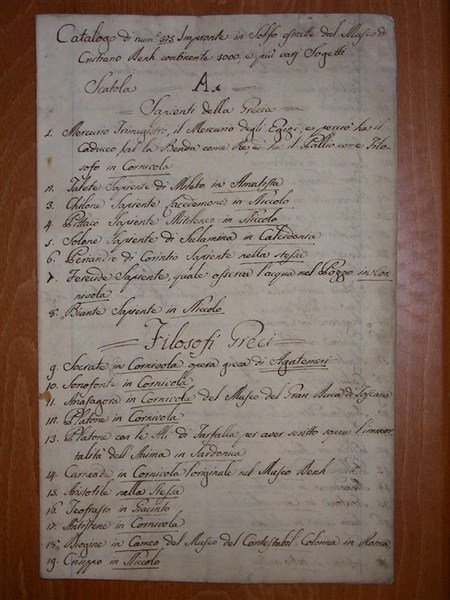 Catalogo di num.º 525 Impronte in Solfo estratte dal Museo di
Cristiano Denh continente 3000. e più varj Sogetti
Scatola A.
Sapienti della Grecia
1. Mercurio Trimegistro, il Mercurio degli Egizj, e perciò ha il
Caduceo, ha la Benda come Rè, e ha il Pallio come Filo-
sofo in Cornicola
2. Talete Sapiente di Mileto in Amatista
3. Chilone Sapiente Lacedemone in Niccolo
4. Pittaco Sapiente Mitileneo in Niccolo
5. Solone Sapiente di Salamina in Calcidonia
6. Periandro di Corintio Sapiente nella stessa
7. Ferecide Sapiente, quale osserva l'acqua nel Pozzo in Cor-
nicola
8. Biante Sapiente in Niccolo
Filosofi Greci
9. Socrate in Cornicola opera greca di Agatemeri
10. Senofonte in Cornicola
11. Anassagora in Cornicola del Museo del Gran Duca di Toscana
12. Platone in Cornicola
13. Platone con le Ali di Farfalla per aver scritto sopra l'immor-
talità dell'Anima in Sardonica
14. Carneade in Cornicola l'originale nel Museo Denh
15. Aristotile nella Stessa
16. Teofrasto in Giacinto
17. Antistene in Cornicola
18. Diogine in Cameo del Museo del Contestabil Colonna in Roma
19. Crisippo in Niccolo